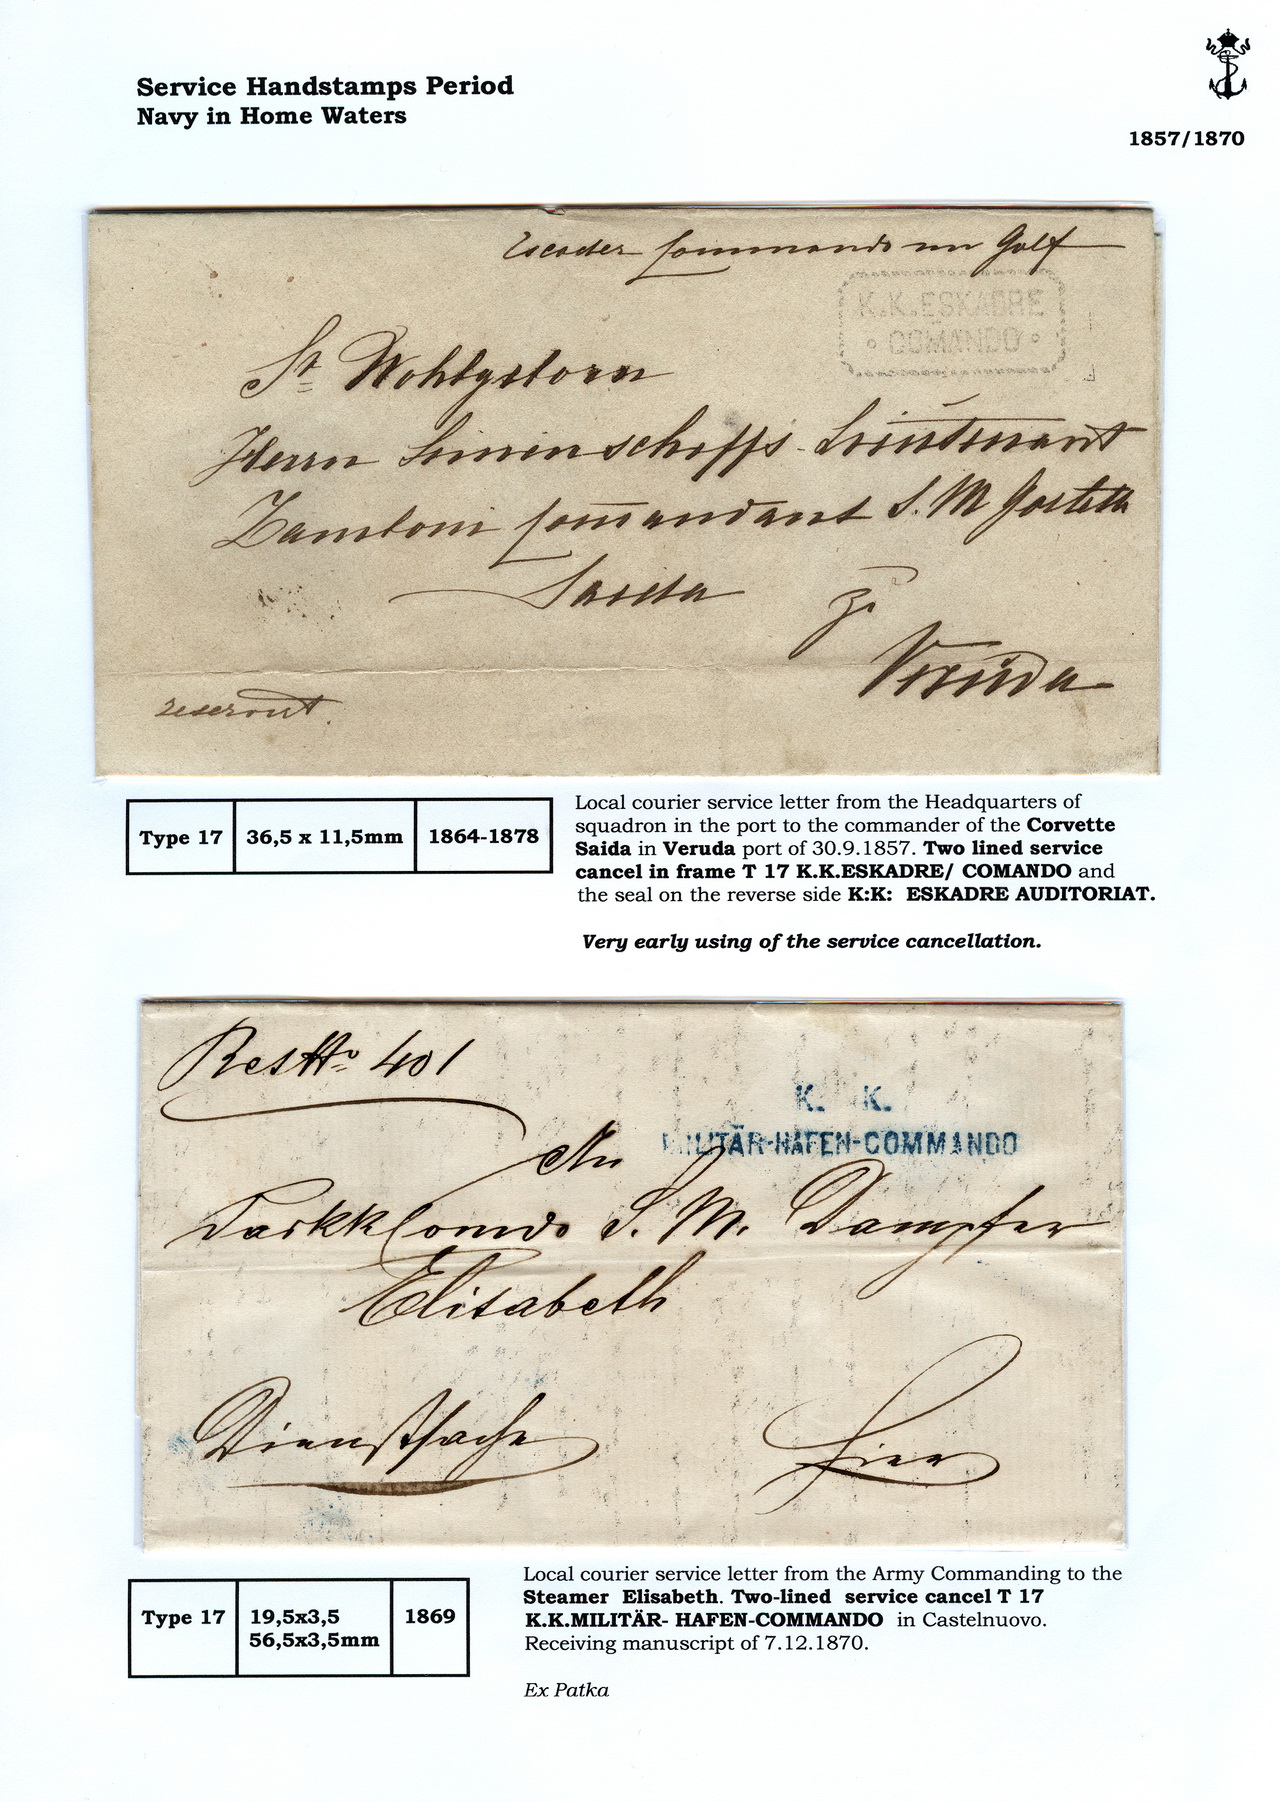 Service Handstamps Period
Navy in Home Waters
1857/1870
Escader Commando im Golf
K.K.ESKADRE
COMANDO
Sr Wohlgeborn
Herrn Linienschiffs-Lieutenant
Zamboni Commandant S. M
Saida zu
Veruda
Type 17 36,5 x 11,5mm 1864-1878
Local courier service letter from the Headquarters of
squadron in the port to the commander of the Corvette
Saida in Veruda port of 30.9.1857. Two lined service
cancel in frame T 17 K.K.ESKADRE/ COMANDO and
the seal on the reverse side K:K: ESKADRE AUDITORIAT.
Very early using of the service cancellation.
401
K. K.
MILITÄR-HAFEN-COMMANDO
An
S. M. Dampfer
Elisabeth
Dienstsache Hier
Type 17 19,5x3,5 1869
56,5x3,5mm
Local courier service letter from the Army Commanding to the
Steamer Elisabeth. Two-lined service cancel T 17
K.K.MILITÄR- HAFEN-COMMANDO in Castelnuovo.
Receiving manuscript of 7.12.1870.
Ex Patka